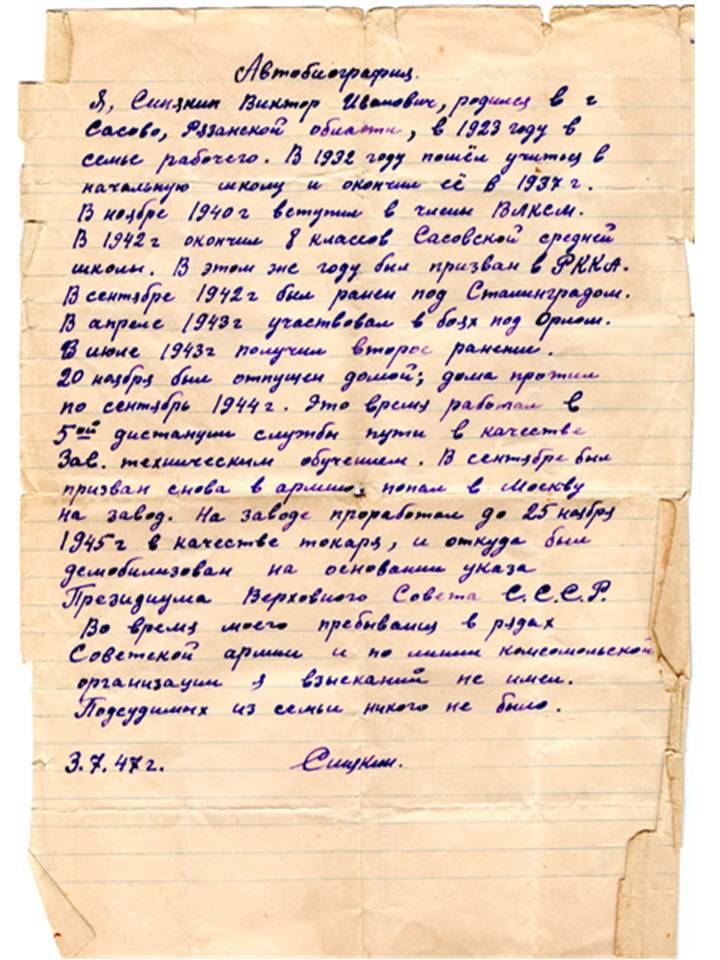 Автобиография.
Я, Синякин Виктор Иванович, родился в г
Сасово, Рязанской области, в 1923 году в
семье рабочего. В 1932 году пошёл учится в
начальную школу и окончил её в 1937 г.
В ноябре 1940 г вступил в члены ВЛКСМ.
В 1942 г окончил 8 классов Сасовской средней
школы. В этом же году был призван в РККА.
В сентябре 1942 г был ранен под Сталинградом.
В апреле 1943 г участвовал в боях под Орлом.
В июле 1943 г получил второе ранение.
20 ноября был отпущен домой; дома прожил
по сентябрь 1944 г. Это время работал в
5ой дистанции службы пути в качестве
Зав. техническим обучением. В сентябре был
призван снова в армию, попал в Москву
на завод. На заводе проработал до 25 ноября
1945 г в качестве токаря, и откуда был
демобилизован на основании указа
Президиума Верховного Совета С.С.С.Р.
Во время моего пребывания в рядах
Советской армии и по линии комсомольской
организации я взысканий не имел.
Подсудимых из семьи никого не было.
3.7.47 г. Синякин.